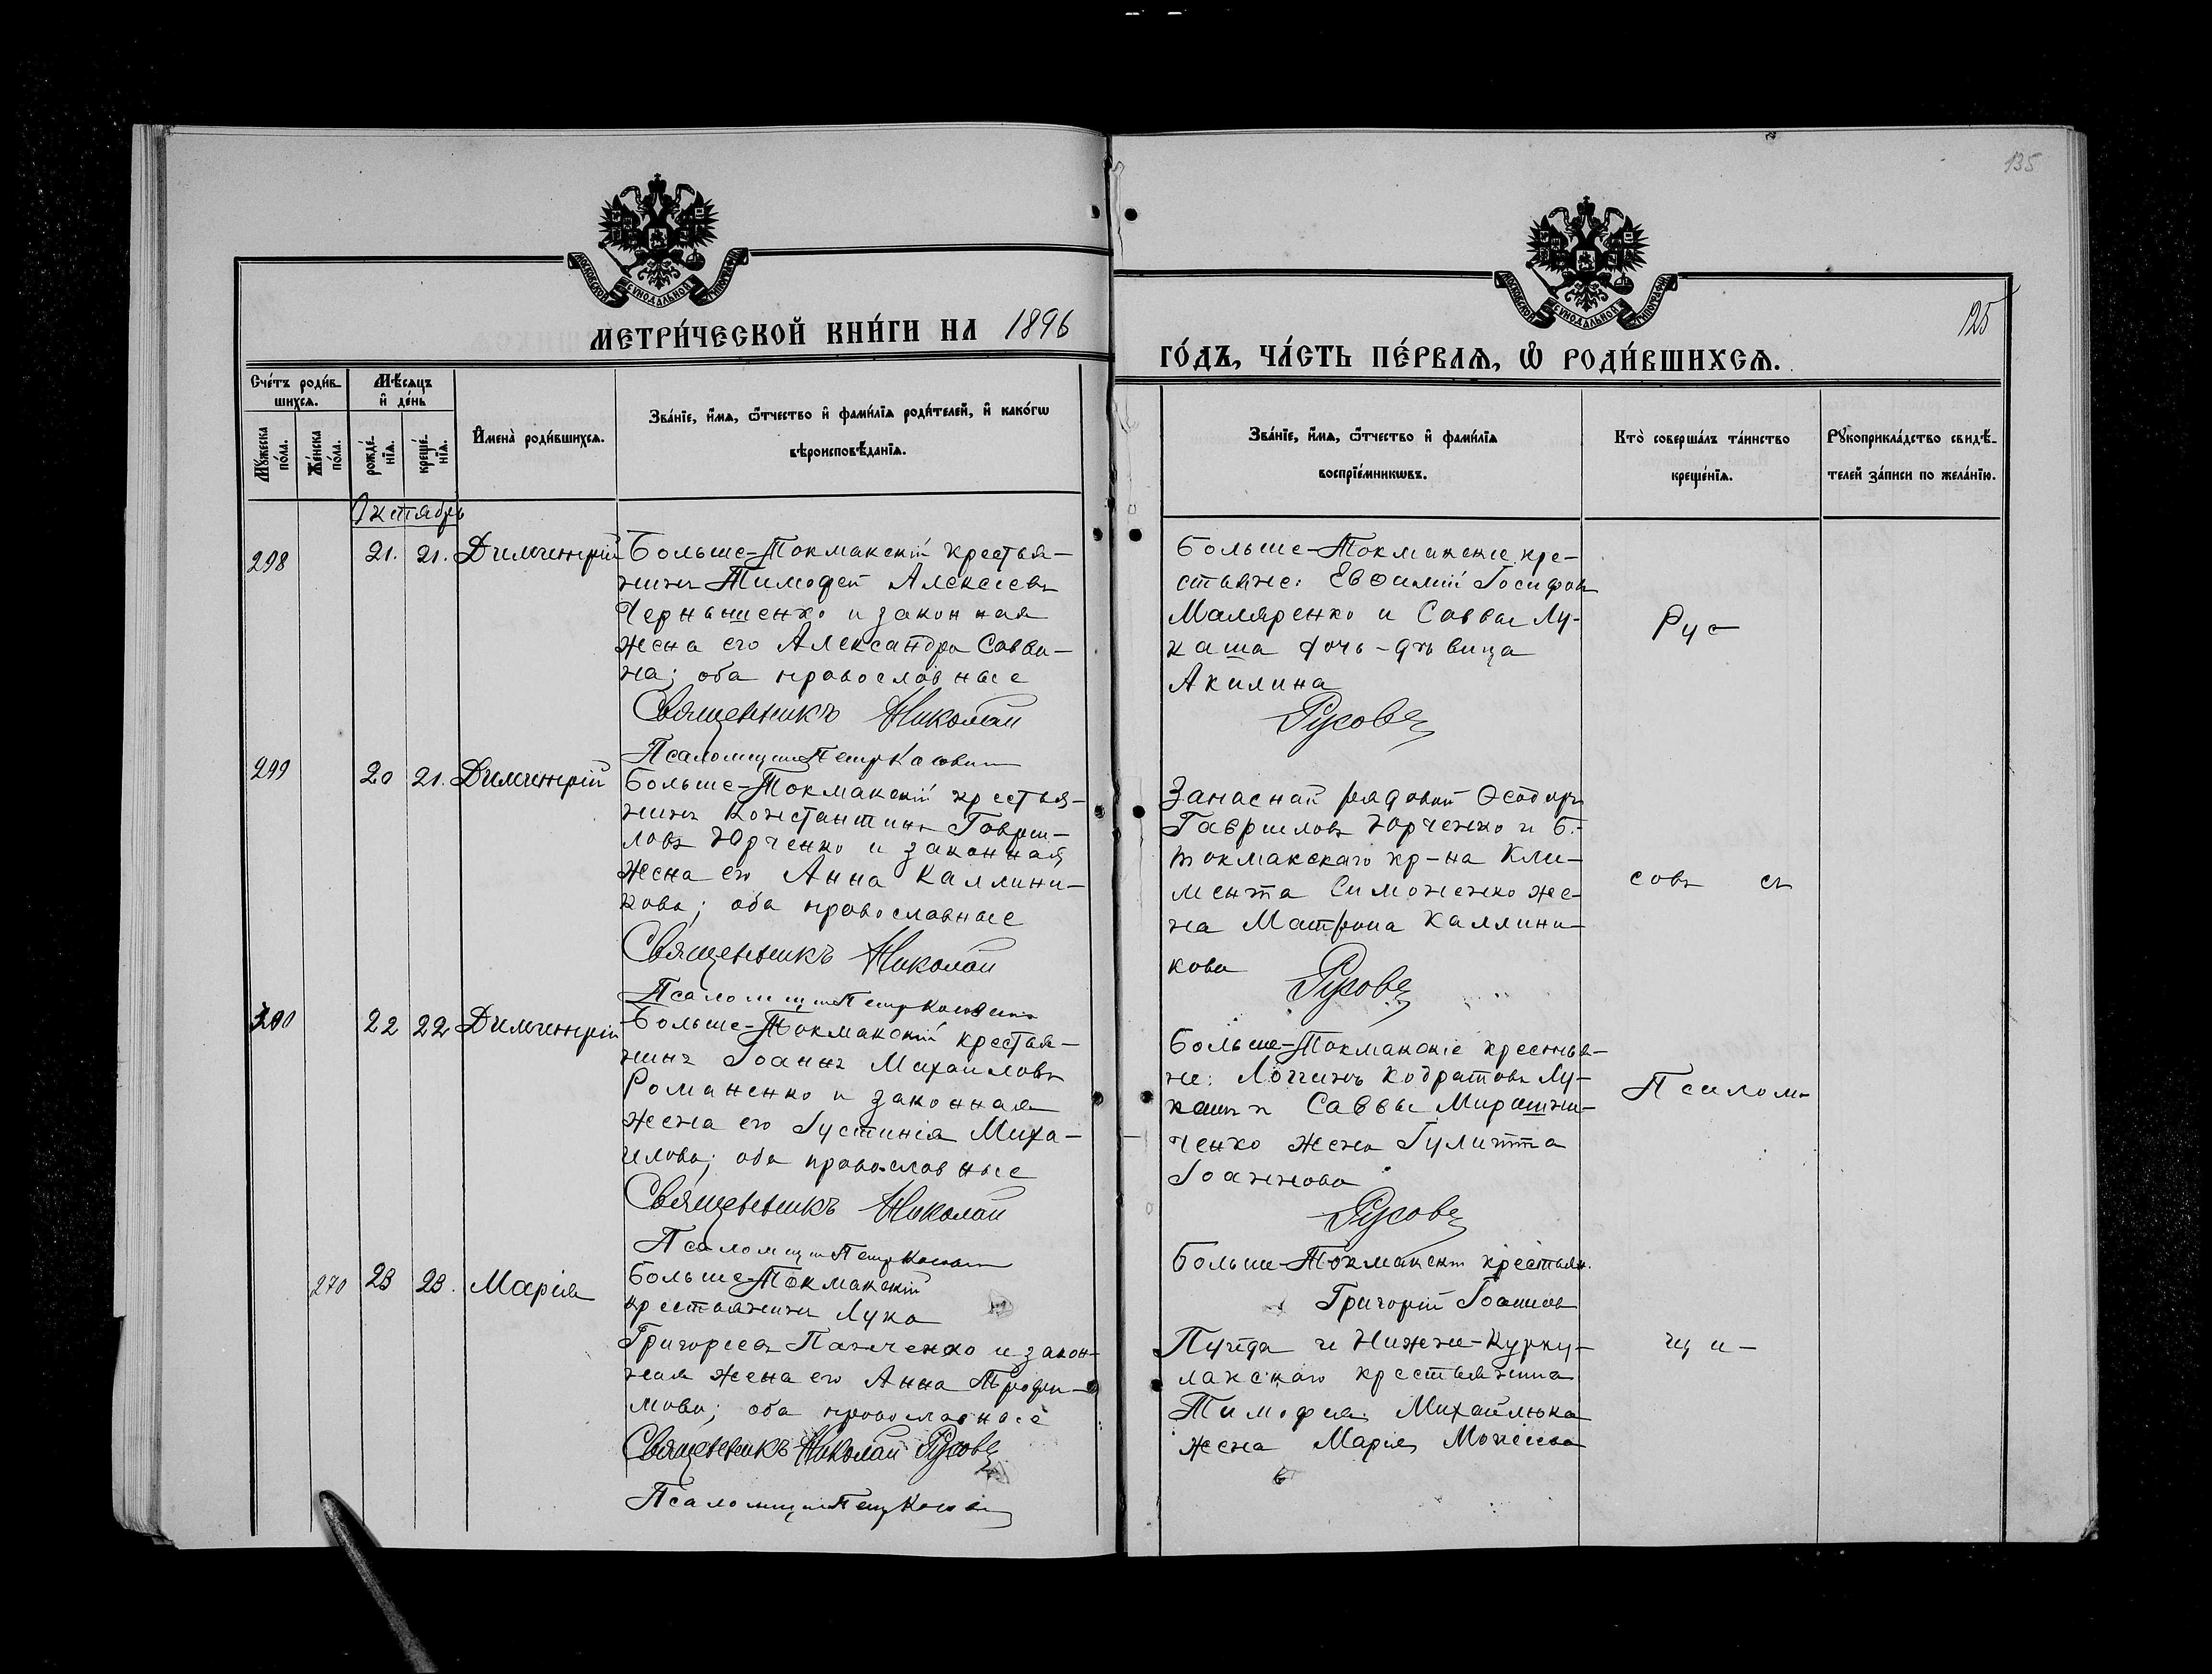 135
МОСКОВСКОЙ СѴНОДАЛЬНОЙ ТИПОГРАФІИ
МОСКОВСКОЙ СѴНОДАЛЬНОЙ ТИПОГРАФІИ
125
МЕТРИ́ЧЕСКОЙ КНИ́ГИ НА 1896
ГО́ДЪ, ЧА́СТЬ ПЕ́РВАѦ, Ѿ РОДИ́ВШИХСѦ.
Сче́тъ роди́в-
шихсѧ.
Мꙋ́жеска по́ла.
Же́нска по́ла.
Мѣ́сѧцъ
и҆ де́нь
рожде́-
нїѧ.
креще́-
нїѧ.
И҆мена̀ роди́вшихсѧ.
Зва́нїе, и҆́мѧ, ѻ҆́тчество и҆ фами́лїѧ роди́телей, и҆ како́гѡ
вѣроисповѣ́данїѧ.
Зва́нїе, и҆́мѧ, ѻ҆́тчество и҆ фами́лїѧ
воспрїе́мникѡвъ.
Кто̀ соверша́лъ та́инство
креще́нїѧ.
Рꙋкоприкла́дство свидѣ́-
телей за́писи по жела́нїю.
Октябрь
298 21. 21. Димитрій
Больше-Токмакскій крестья-
нинъ Тимофей Алексеевъ
Чернышенко и законная
жена его Александра Савви-
на; оба православные
Священникъ Николай
Псаломщикъ Петр
Больше-Токмакские кре-
стьяне: Евѳимій Іосифовъ
Маляренко и Саввы Лу-
каша дочь-дѣвица
Акилина
Русовъ
Рус-
299 20 21. Димитрій
Больше-Токмакскій крестья-
нинъ Константинъ Гаври-
ловъ Юрченко и законная
жена его Анна Каллини-
кова; оба православные
Священникъ Николай
Псаломщикъ Петр
Запасный рядовой Ѳеодоръ
Гавриловъ Юрченко и Б.-
токмакскаго кр-на Кли-
мента Симоненко же-
на Матрона Каллини-
кова
Русовъ
совъ съ
300 22 22 Димитрій
Больше-Токмакскій крестья-
нинъ Іоаннъ Михаиловъ
Романенко и законная
жена его Іустинія Миха-
илова; оба православные
Священникъ Николай
Псаломщикъ Петр
Больше-Токмакскіе крестья-
не: Логгинъ Кодратовъ Лу-
кашъ и Саввы Мирошни-
ченко жена Іулитта
Іоаннова
Русовъ
Псалом-
270 23 23. Марія
Больше-Токмакскій
крестьянинъ Лука
Григорьевъ Панченко и закон-
ная жена его Анна Трофи-
мова; оба православные
Священникъ Николай Русовъ
Псаломщикъ Петр
Больше-Токмакскій крестьян.
Григорій Іоанновъ
и Нижне-Курку-
лакскаго крестьянина
Тимофея Михайлюка
жена Марія Моисеева
щи-